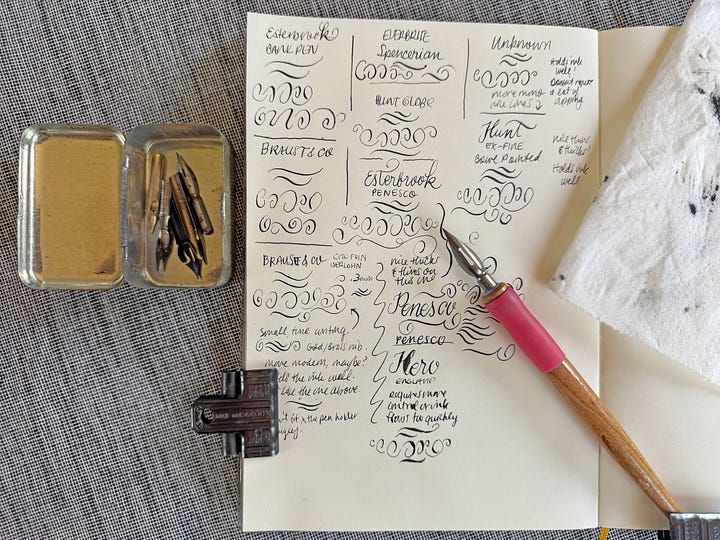 Esterbrook
BANK PEN
BRAUST & CO
BRAUSE & CO
CITO FEIN
ISERLOHN
.3mm
Small, fine writing.
Good/Brass nib.
more modern, maybe?
the ink well.
like the one above.
't fit x the pen holder
EVERBRITE
Spencerian
HUNT GLOBE
Esterbrook
PENESCO
nice thicks
& thins on
this one
Penesco
PENESCO
Hero
ENGLAND
requires more
control or ink
flows too quickly
Unknown
Holds ink
well!
Doesn't require
a lot of
dipping
more mono
line lines
Hunt
EX-FINE
Bowl Pointed
nice thins
& thicks!
Holds ink
well